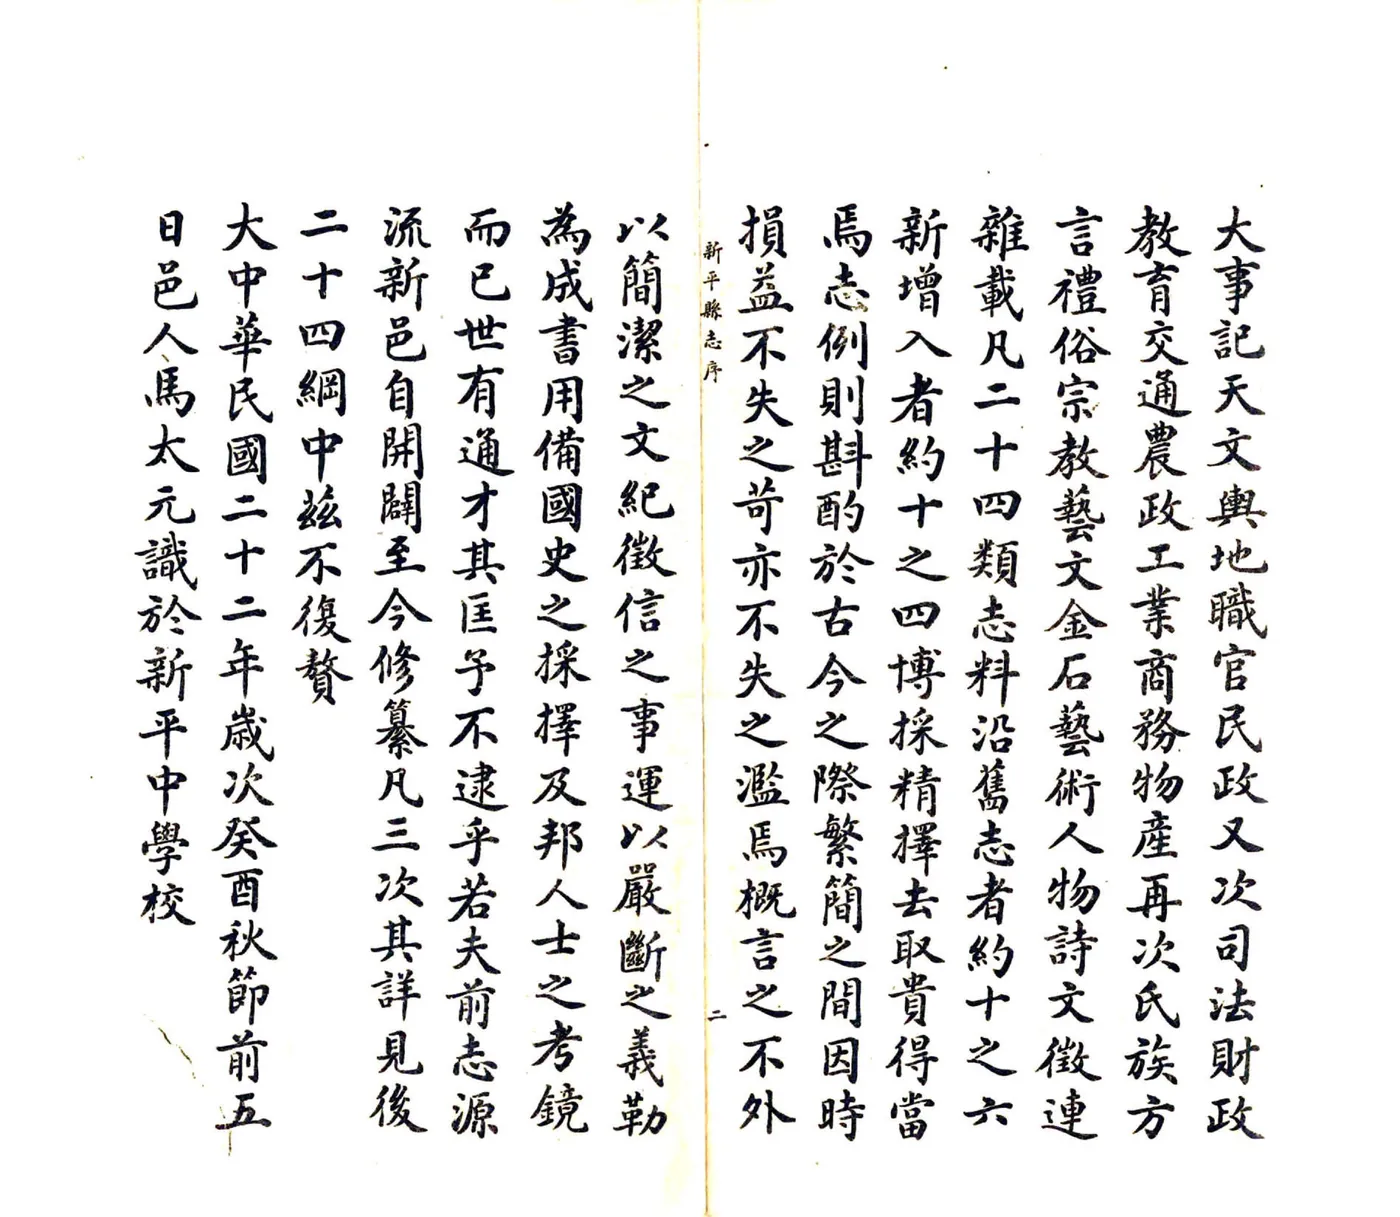 大事記天文輿地職官民政又次司法財政
教育交通農政工業商務物產再次氏族方
言禮俗宗教藝文金石藝術人物詩文徵連
雜載凡二十四類志料沿舊志者約十之六
新增入者約十之四博採精擇去取貴得當
焉志例則斟酌於古今之際繁簡之間因時
損益不失之苛亦不失之濫焉概言之不外
新平縣志序
二
以簡潔之文紀徵信之事運以嚴斷之義勒
為成書用備國史之採擇及邦人士之考鏡
而已世有通才其匡予不逮乎若夫前志源
流新邑自開闢至今修纂凡三次其詳見後
二十四綱中茲不復贅
大中華民國二十二年歲次癸酉秋節前五
日邑人馬太元識於新平中學校